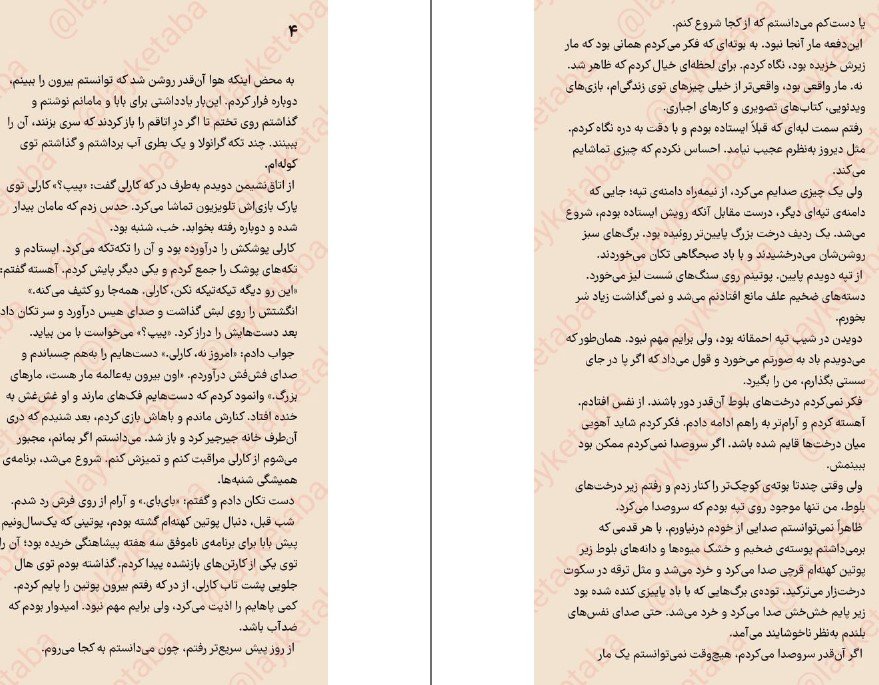 ۴
به محض اینکه هوا آن‌قدر روشن شد که توانستم بیرون را ببینم،
دوباره فرار کردم. این‌بار یادداشتی برای بابا و مامانم نوشتم و
گذاشتم روی تختم تا اگر درِ اتاقم را باز کردند که سری بزنند، آن را
ببینند. چند تکه گرانولا و یک بطری آب برداشتم و گذاشتم توی
کوله‌ام.
از اتاق‌نشیمن دویدم به‌طرف در که کارلی گفت: «پیپ؟» کارلی توی
پارک بازی‌اش تلویزیون تماشا می‌کرد. حدس زدم که مامان بیدار
شده و دوباره رفته بخوابد. خب، شنبه بود.
کارلی پوشکش را درآورده بود و آن را تکه‌تکه می‌کرد. ایستادم و
تکه‌های پوشک را جمع کردم و یکی دیگر پایش کردم. آهسته گفتم:
«این رو دیگه تیکه‌تیکه نکن، کارلی. همه‌جا رو کثیف می‌کنه.»
انگشتش را روی لبش گذاشت و صدای هیس درآورد و سر تکان داد.
بعد دست‌هایش را دراز کرد. «پیپ؟» می‌خواست با من بیاید.
جواب دادم: «امروز نه، کارلی.» دست‌هایم را به‌هم چسباندم و
صدای فش‌فش درآوردم. «اون بیرون یه‌عالمه مار هست، مارهای
بزرگ.» وانمود کردم که دست‌هایم فک‌های مارند و او غش‌غش به
خنده افتاد. کنارش ماندم و باهاش بازی کردم، بعد شنیدم که دری
آن‌طرف خانه جیرجیر کرد و باز شد. می‌دانستم اگر بمانم، مجبور
می‌شوم از کارلی مراقبت کنم و تمیزش کنم. شروع می‌شد، برنامه‌ی
همیشگی شنبه‌ها.
دست تکان دادم و گفتم: «بای‌بای.» و آرام از روی فرش رد شدم.
شب قبل، دنبال پوتین کهنه‌ام گشته بودم، پوتینی که یک‌سال‌ونیم
پیش بابا برای برنامه‌ی ناموفق سه هفته پیشاهنگی خریده بود؛ آن را
توی یکی از کارتن‌های بازنشده پیدا کردم. گذاشته بودم توی هال
جلویی پشت تاب کارلی. از در که رفتم بیرون پوتین را پایم کردم.
کمی پاهایم را اذیت می‌کرد، ولی برایم مهم نبود. امیدوار بودم که
ضدآب باشد.
از روز پیش سریع‌تر رفتم، چون می‌دانستم به کجا می‌روم.
یا دست‌کم می‌دانستم که از کجا شروع کنم.
این‌دفعه مار آنجا نبود. به بوته‌ای که فکر می‌کردم همانی بود که مار
زیرش خزیده بود، نگاه کردم. برای لحظه‌ای خیال کردم که ظاهر شد.
نه. مار واقعی بود، واقعی‌تر از خیلی چیزهای توی زندگی‌ام، بازی‌های
ویدئویی، کتاب‌های تصویری و کارهای اجباری.
رفتم سمت لبه‌ای که قبلاً ایستاده بودم و با دقت به دره نگاه کردم.
مثل دیروز به‌نظرم عجیب نیامد. احساس نکردم که چیزی تماشایم
می‌کند.
ولی یک چیزی صدایم می‌کرد، از نیمه‌راه دامنه‌ی تپه؛ جایی که
دامنه‌ی تپه‌ای دیگر، درست مقابل آنکه رویش ایستاده بودم، شروع
می‌شد. یک ردیف درخت بزرگ پایین‌تر روئیده بود. برگ‌های سبز
روشن‌شان می‌درخشیدند و با باد صبحگاهی تکان می‌خوردند.
از تپه دویدم پایین. پوتینم روی سنگ‌های سُست لیز می‌خورد.
دسته‌های ضخیم علف مانع افتادنم می‌شد و نمی‌گذاشت زیاد سُر
بخورم.
دویدن در شیب تپه احمقانه بود، ولی برایم مهم نبود. همان‌طور که
می‌دویدم باد به صورتم می‌خورد و قول می‌داد که اگر پا در جای
سستی بگذارم، من را بگیرد.
فکر نمی‌کردم درخت‌های بلوط آن‌قدر دور باشند. از نفس افتادم.
آهسته کردم و آرام‌تر به راهم ادامه دادم. فکر کردم شاید آهویی
میان درخت‌ها قایم شده باشد. اگر سروصدا نمی‌کردم ممکن بود
ببینمش.
ولی وقتی چندتا بوته‌ی کوچک‌تر را کنار زدم و رفتم زیر درخت‌های
بلوط، من تنها موجود روی تپه بودم که سروصدا می‌کرد.
ظاهراً نمی‌توانستم صدایی از خودم درنیاورم. با هر قدمی که
برمی‌داشتم پوسته‌ی ضخیم و خشک میوه‌ها و دانه‌های بلوط زیر
پوتین کهنه‌ام قرچی صدا می‌کرد و خرد می‌شد و مثل ترقه در سکوت
درخت‌زار می‌ترکید. توده‌ی برگ‌هایی که با باد پاییزی کنده شده بود
زیر پایم خش‌خش صدا می‌کرد و خرد می‌شد. حتی صدای نفس‌های
بلندم به‌نظر ناخوشایند می‌آمد.
اگر آن‌قدر سروصدا می‌کردم، هیچ‌وقت نمی‌توانستم یک مار
@layketaba